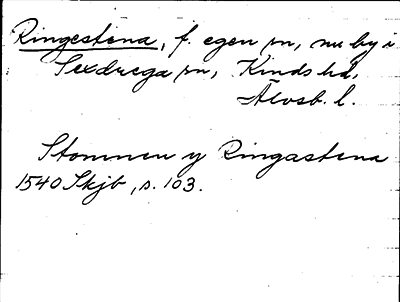 Ringestena, f. egen sn, nu by i
Sexdrega sn, Kinds hd,
Älvsb. l.
Stommen y Ringastena
1540 Skjb, s. 103.